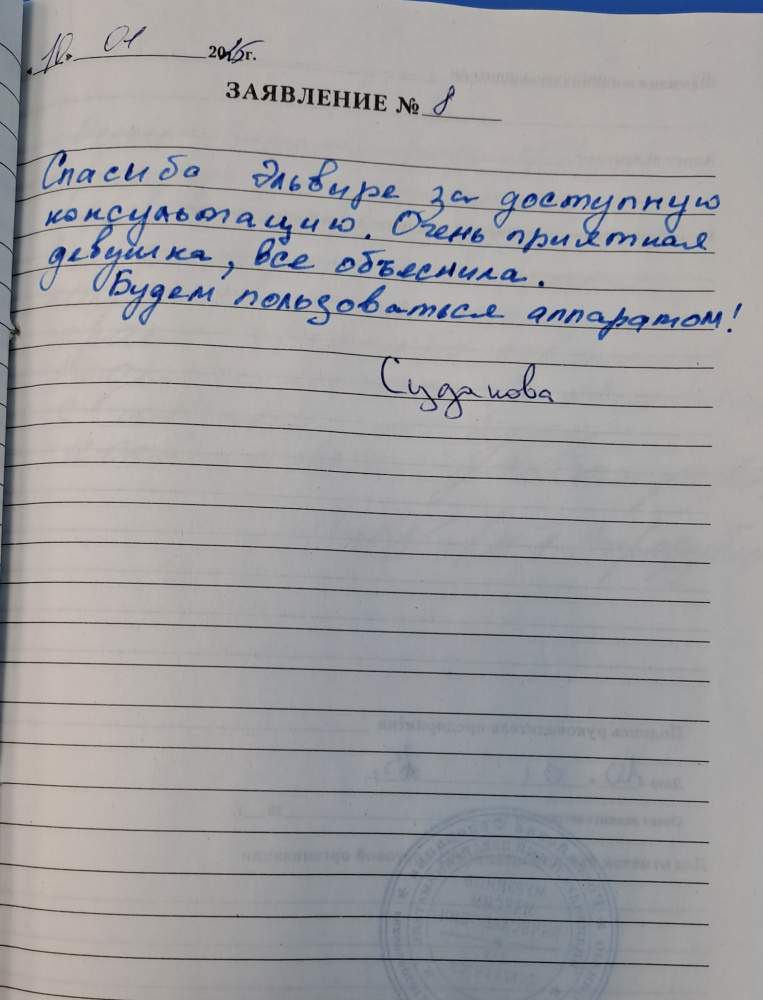 «10» 01 2025г.
ЗАЯВЛЕНИЕ № 8
Спасиба Эльвире за доступную
консультацию. Очень приятная
девушка, все объеснила.
Будем пользоваться аппаратом!
Судакова